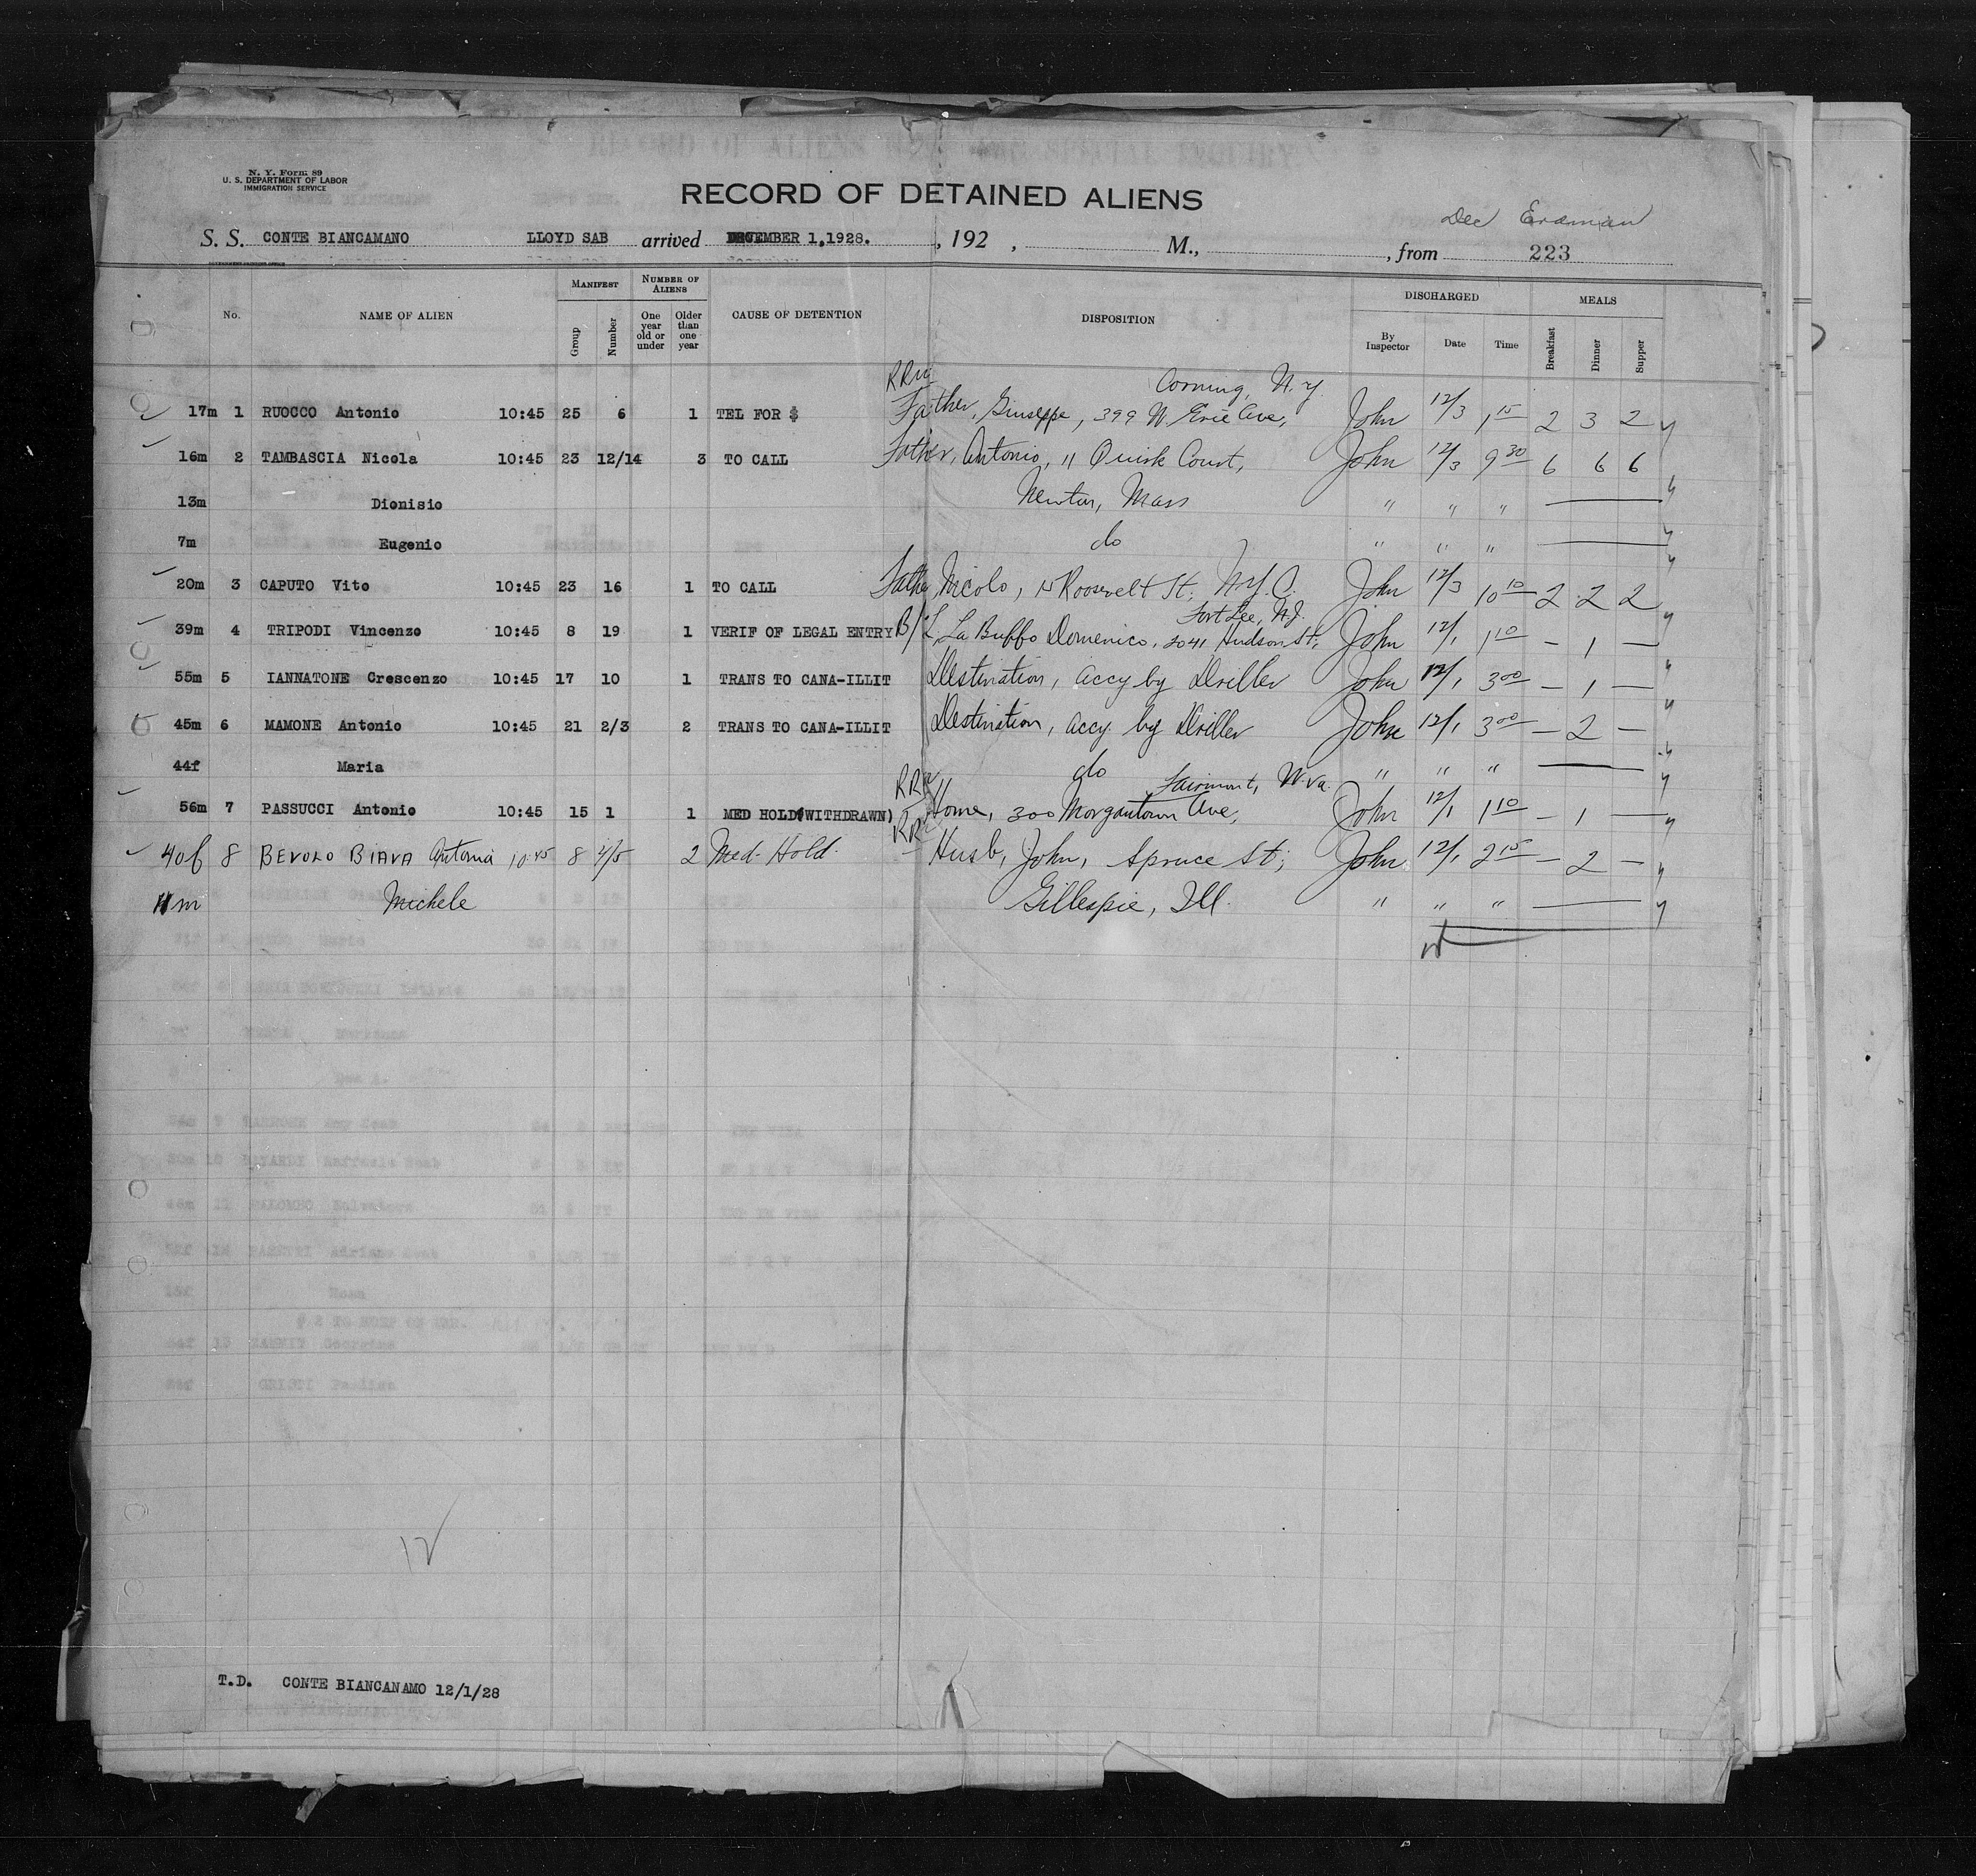 N. Y. Form 89
U. S. DEPARTMENT OF LABOR
IMMIGRATION SERVICE
RECORD OF DETAINED ALIENS
Dec Erdman
S. S. CONTE BIANCAMANO LLOYD SAB arrived DECEMBER 1,1928. , 192 , M., , from 223
GOVERNMENT PRINTING OFFICE
No. NAME OF ALIEN MANIFEST Group Number NUMBER OF ALIENS One year old or under Older than one year CAUSE OF DETENTION DISPOSITION DISCHARGED By Inspector Date Time MEALS Breakfast Dinner Supper
Corning, N.Y.
17m 1 RUOCCO Antonio 10:45 25 6 1 TEL FOR $ Father, Giuseppe, 399 W. Erie Ave, John 12/3 1 15 2 3 2 y
16m 2 TAMBASCIA Nicola 10:45 23 12/14 3 TO CALL Father, Antonio, 11 Quirk Court, John 12/3 9 30 6 6 6 y
13m Dionisio Newton, Mass " " " — y
7m Eugenio do " " " — y
20m 3 CAPUTO Vito 10:45 23 16 1 TO CALL Father Nicolo, 15 Roosevelt St, N.Y.C. John 12/3 10 10 2 2 2 y
Fort Lee, N.J.
39m 4 TRIPODI Vincenzo 10:45 8 19 1 VERIF OF LEGAL ENTRY B/L, La Buffo Domenico, 2041 Hudson St, John 12/1 1 10 – 1 – y
55m 5 IANNATONE Crescenzo 10:45 17 10 1 TRANS TO CANA-ILLIT Destination, accy by Driller John 12/1 3 00 – 1 – y
45m 6 MAMONE Antonio 10:45 21 2/3 2 TRANS TO CANA-ILLIT Destination, accy by Driller John 12/1 3 00 – 2 – y
44f Maria do " " " — y
RRR Fairmont, W.Va.
56m 7 PASSUCCI Antonio 10:45 15 1 1 MED HOLD(WITHDRAWN) Home, 300 Morgantown Ave, John 12/1 1 10 – 1 – y
40f 8 BEVOLO BIAVA Antonia 10:45 8 4/5 2 Med. Hold. Husb, John, Spruce St, John 12/1 2 15 – 2 – y
11m Michele Gillespie, Ill. " " " — y
12
T.D. CONTE BIANCANAMO 12/1/28